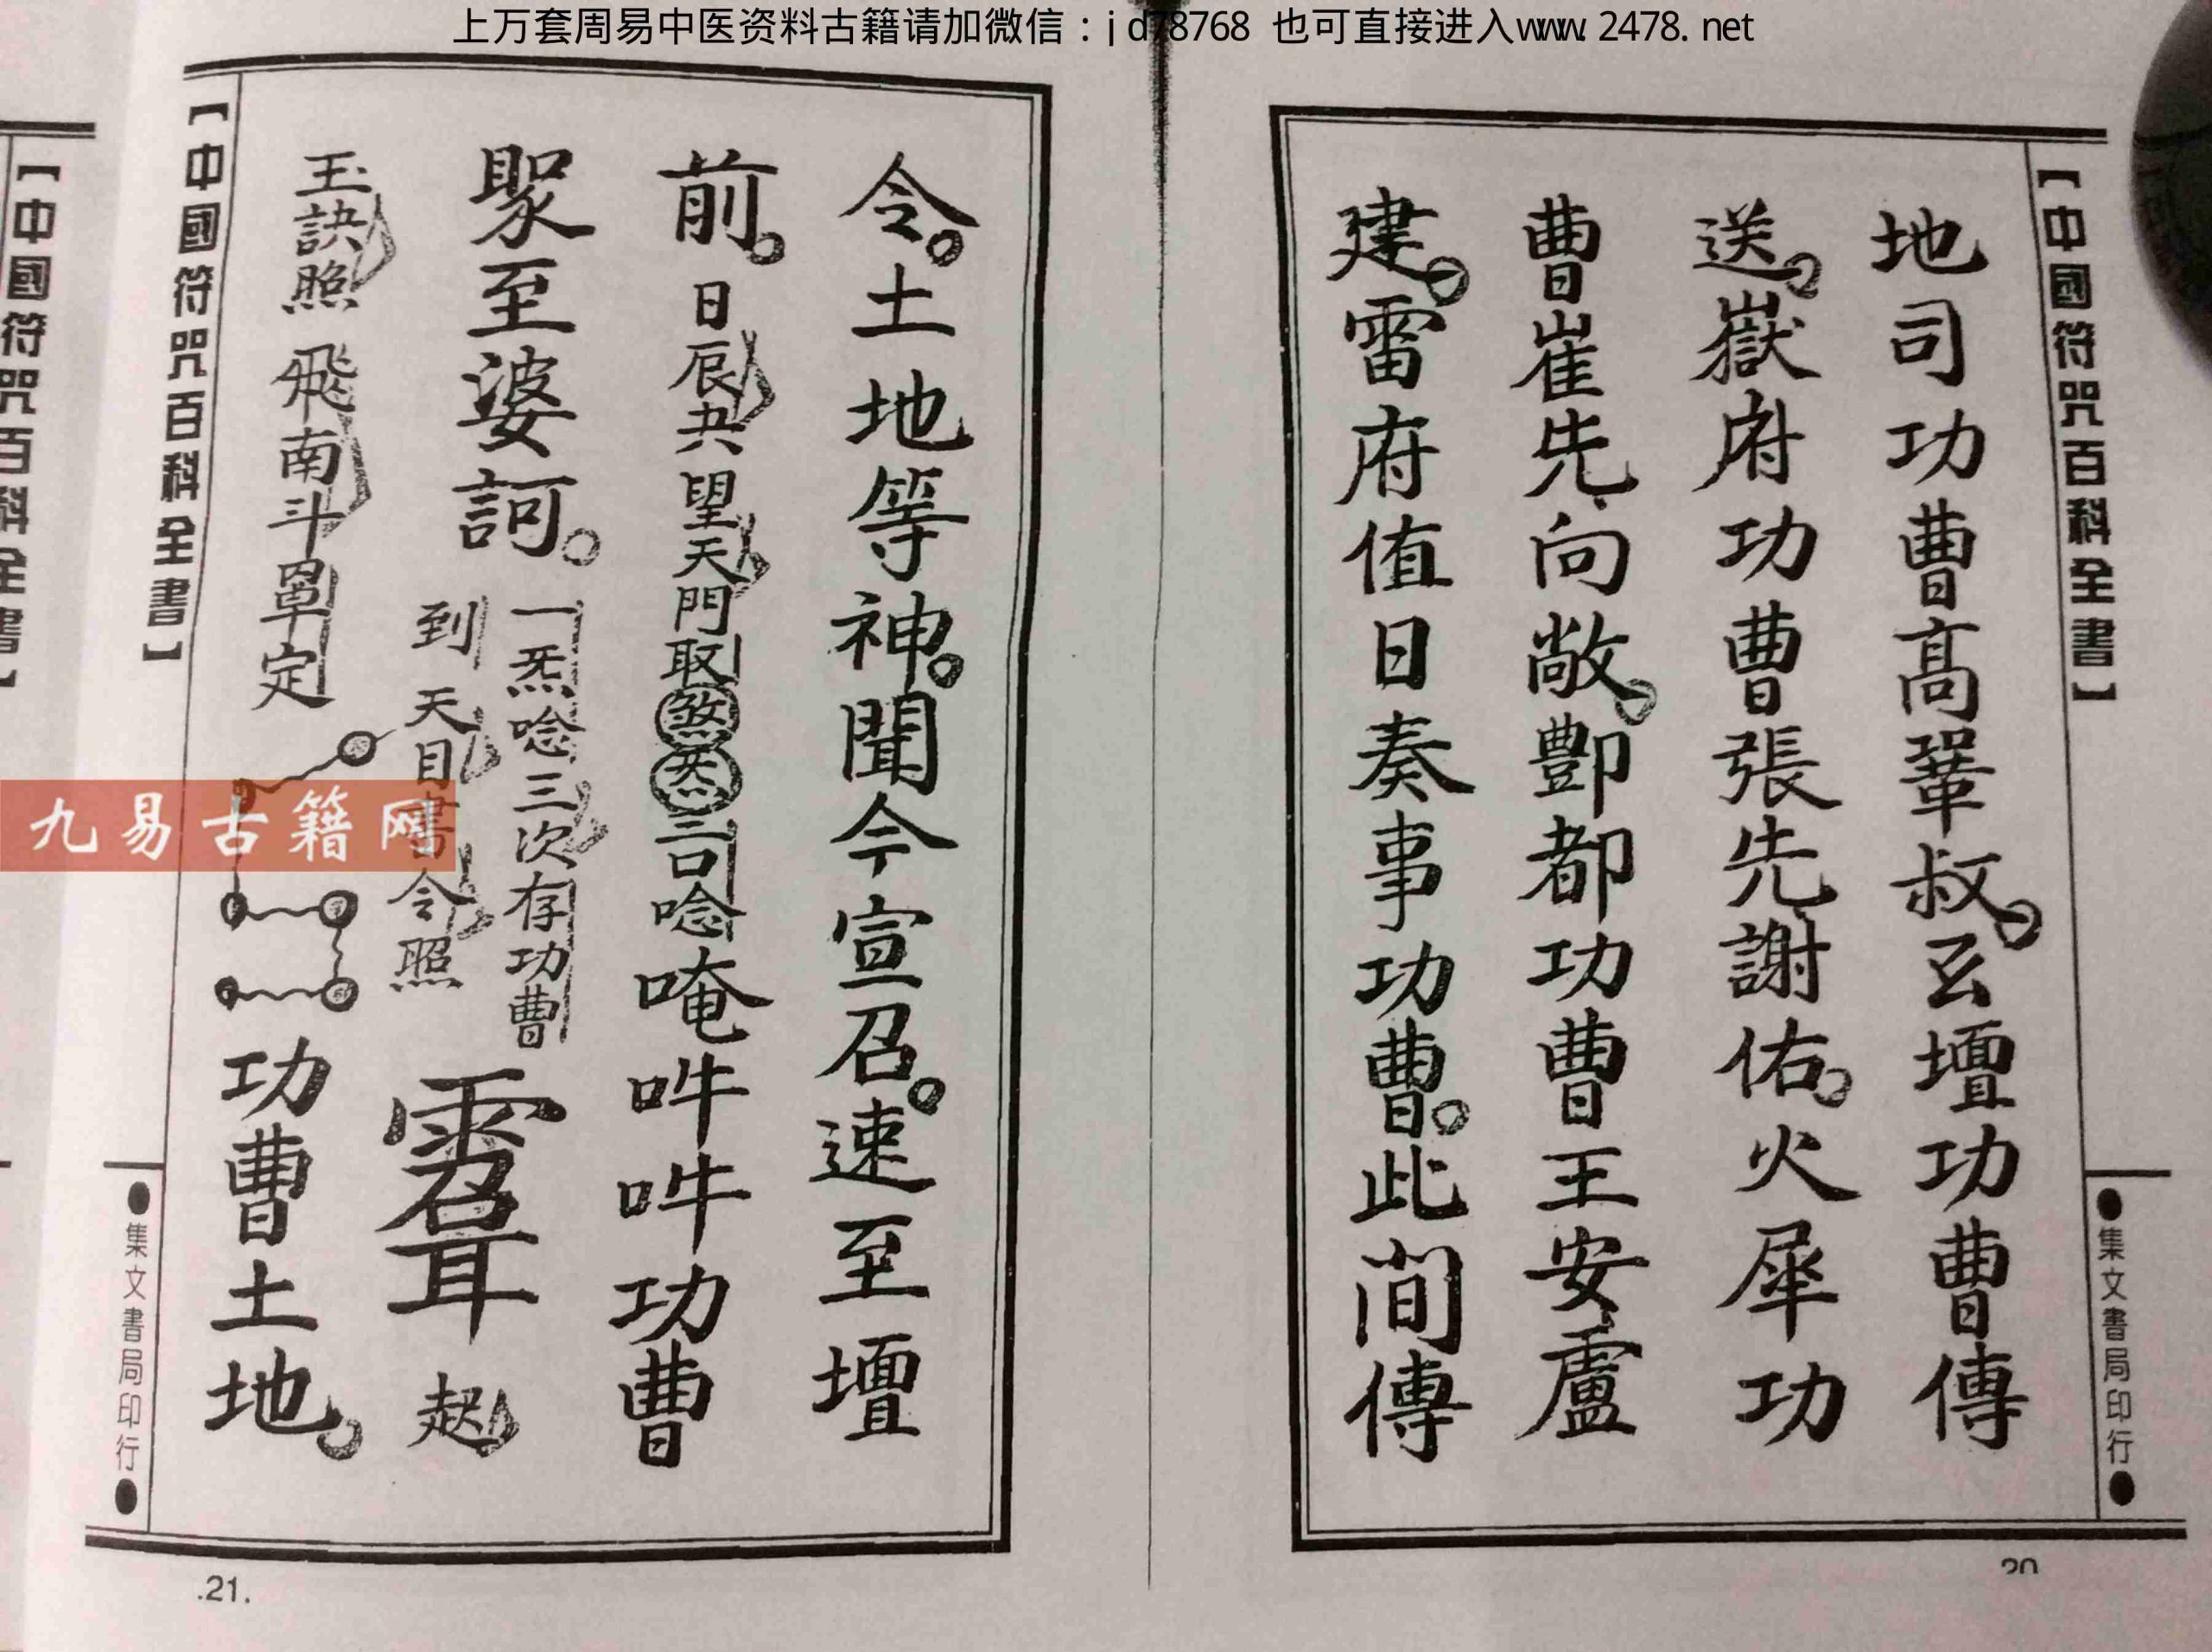 上万套周易中医资料古籍请加微信：jd78768 也可直接进入www.2478.net
【中國符咒百科全書】
●集文書局印行●
地司功曹高鞏叔。玄壇功曹傳
送。嶽府功曹張先謝佑。火犀功
曹崔先向敞。酆都功曹王安盧
建。雷府值日奏事功曹。此間傳
20
令。土地等神。聞今宣召。速至壇
前。日辰共望天門取煞炁三口唸唵吽吽功曹
聚至婆訶。一炁唸三次存功曹
到天目書令照
起
玉訣照飛南斗罩定
功曹土地。
【中國符咒百科全書】
●集文書局印行●
.21.
【中國符咒百科全書】
九易古籍网